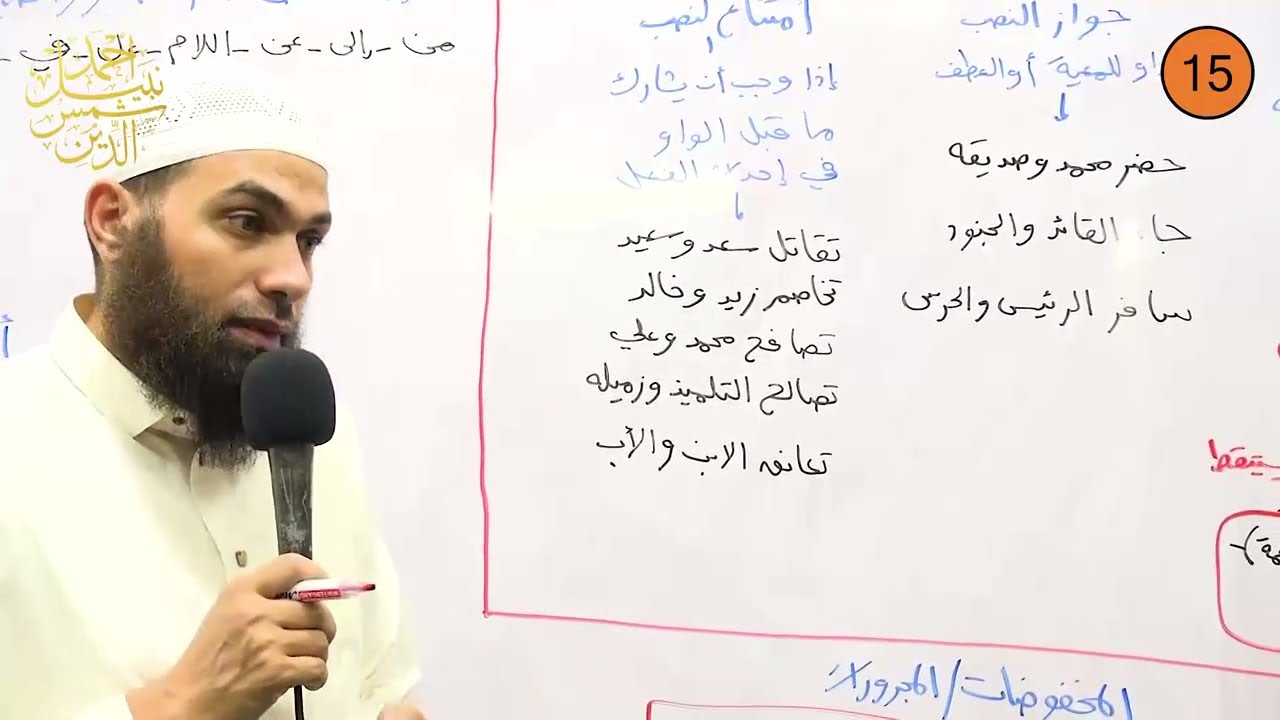 جواز النصب
واو للمعية أو العطف
حضر محمد وصديقه
جاء القائد والجنود
سافر الرئيس والحرس
امتناع لنصب
إذا وجب أن يشارك
ما قبل الواو
في إحداث الفعل
تقاتل سعد وسعيد
تخاصم زيد وخالد
تصافح محمد وعلي
تصالح التلميذ وزميله
تعانق الابن والأب
من - إلى - عن - اللام - على - في -
المخفوضات / المجرورات
أحمد
نبيل
شمس
الدين
15